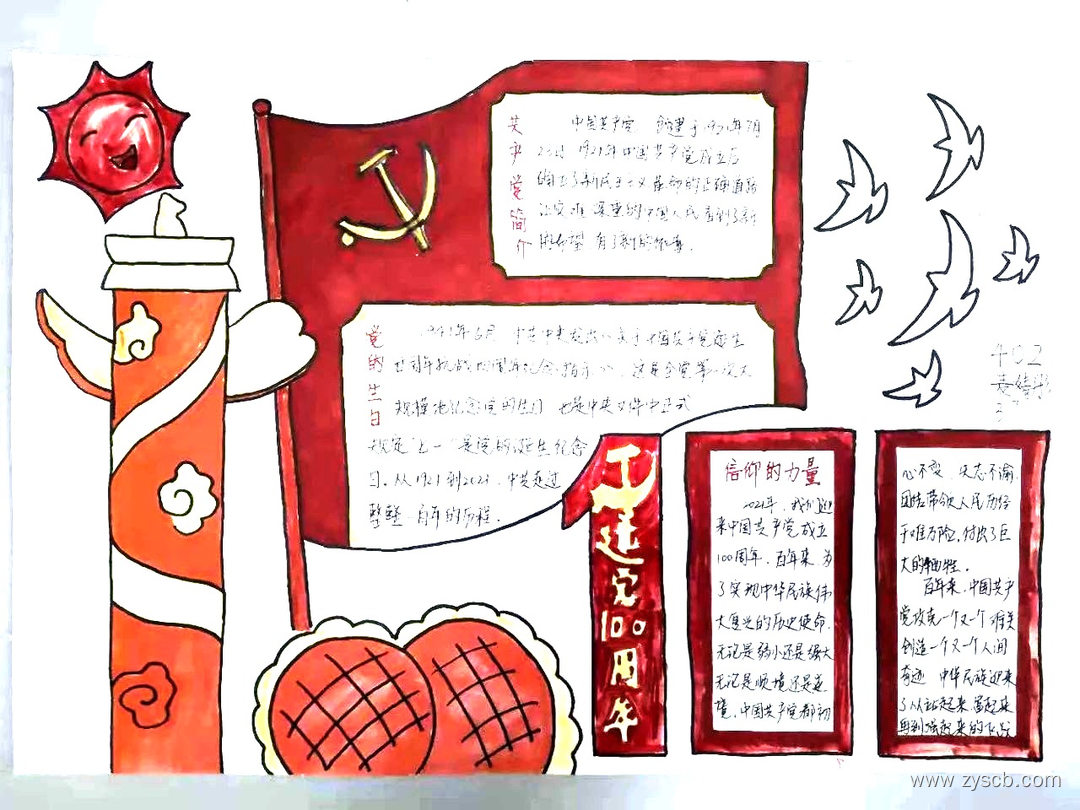 共产党简介
中国共产党 创建于1921年7月
23日 1921年中国共产党成立后
确立了新民主主义革命的正确道路
让灾难深重的中国人民看到了新
的希望 有了新的依靠.
党的生日
1941年6月 中共中央发出《关于中国共产党诞生
廿周年抗战四周年纪念指示》, 这是全党第一次大
规模地纪念党的生日 也是中央文件中正式
规定"七一"是党的诞生纪念
日. 从1921到2021, 中共走过
整整一百年的历程.
建党100周年
信仰的力量
2021年, 我们迎
来中国共产党成立
100周年, 百年来, 为
了实现中华民族伟
大复兴的历史使命,
无论是弱小还是强大
无论是顺境还是逆
境, 中国共产党都初
心不变, 矢志不渝,
团结带领人民历经
千难万险, 付出了巨
大的牺牲.
百年来, 中国共产
党攻克一个又一个难关
创造一个又一个人间
奇迹 中华民族迎来
了从站起来 富起来
再到强起来的飞跃
402
www.zyscb.com